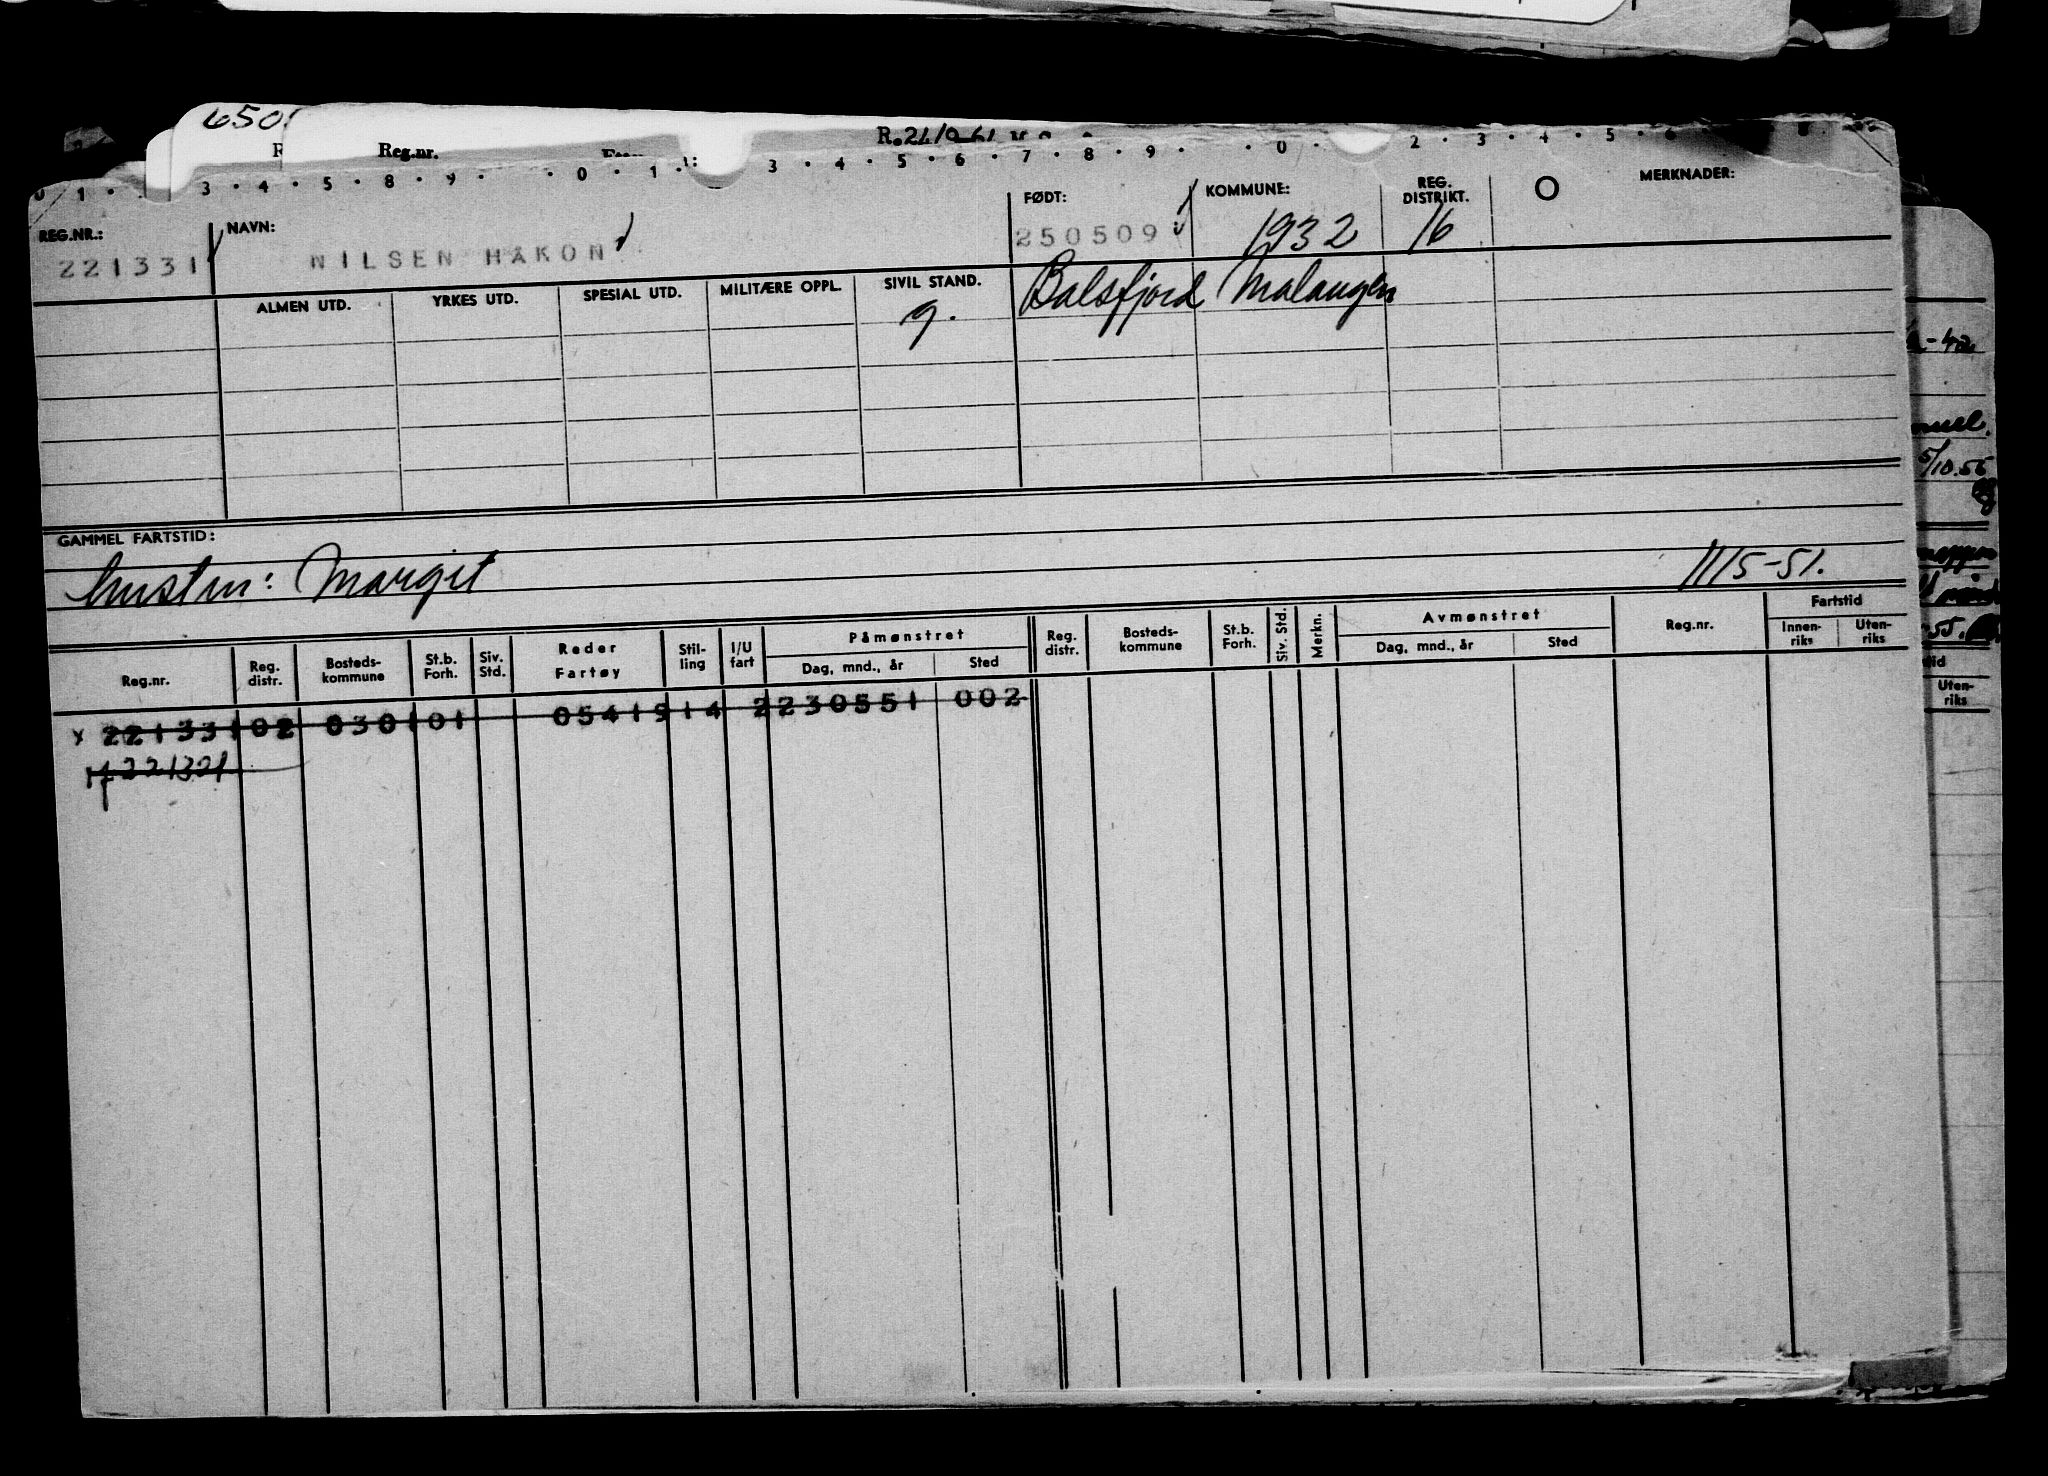 650
Reg.nr.
0 1 · 3 · 4 · 5 · 8 · 9 · · 0 · 1 · 3 · 4 · 5 · 6 · 7 · 8 · 9 · · 0 · 2 · 3 · 4 · 5 · 6 · 8
REG.NR.: NAVN: FØDT: KOMMUNE: REG. DISTRIKT. MERKNADER:
221331 NILSEN HÅKON 250509 1932 16
ALMEN UTD. YRKES UTD. SPESIAL UTD. MILITÆRE OPPL. SIVIL STAND. Balsfjord Malangen
g.
GAMMEL FARTSTID:
hustru: Margit 11/5-51.
Reg.nr. Reg. distr. Bosteds- kommune St.b. Forh. Siv. Std. Reder Fartøy Stil- ling I/U fart Påmønstret Dag, mnd., år Sted Reg. distr. Bosteds- kommune St.b. Forh. Siv. Std. Merkn. Avmønstret Dag, mnd., år Sted Reg.nr. Fartstid Innen- riks Uten- riks
x 221331 02 0301 01 05419 14 2 230551 002
221321
5/10.55
Uten-
riks